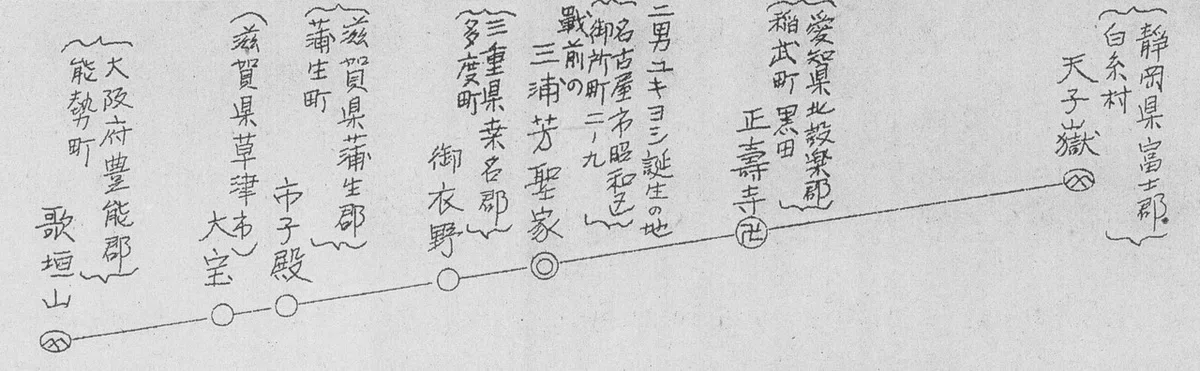 静岡県富士郡
白糸村
天子嶽
愛知県北設楽郡
稲武町 黒田
正壽寺
二男ユキヨシ誕生の地
名古屋市昭和区
御所町二ノ九
戰前の
三浦芳聖家
三重県桒名郡
多度町
御衣野
滋賀県蒲生郡
蒲生町
市子殿
滋賀県草津市
大宝
大阪府豊能郡
能勢町
歌垣山